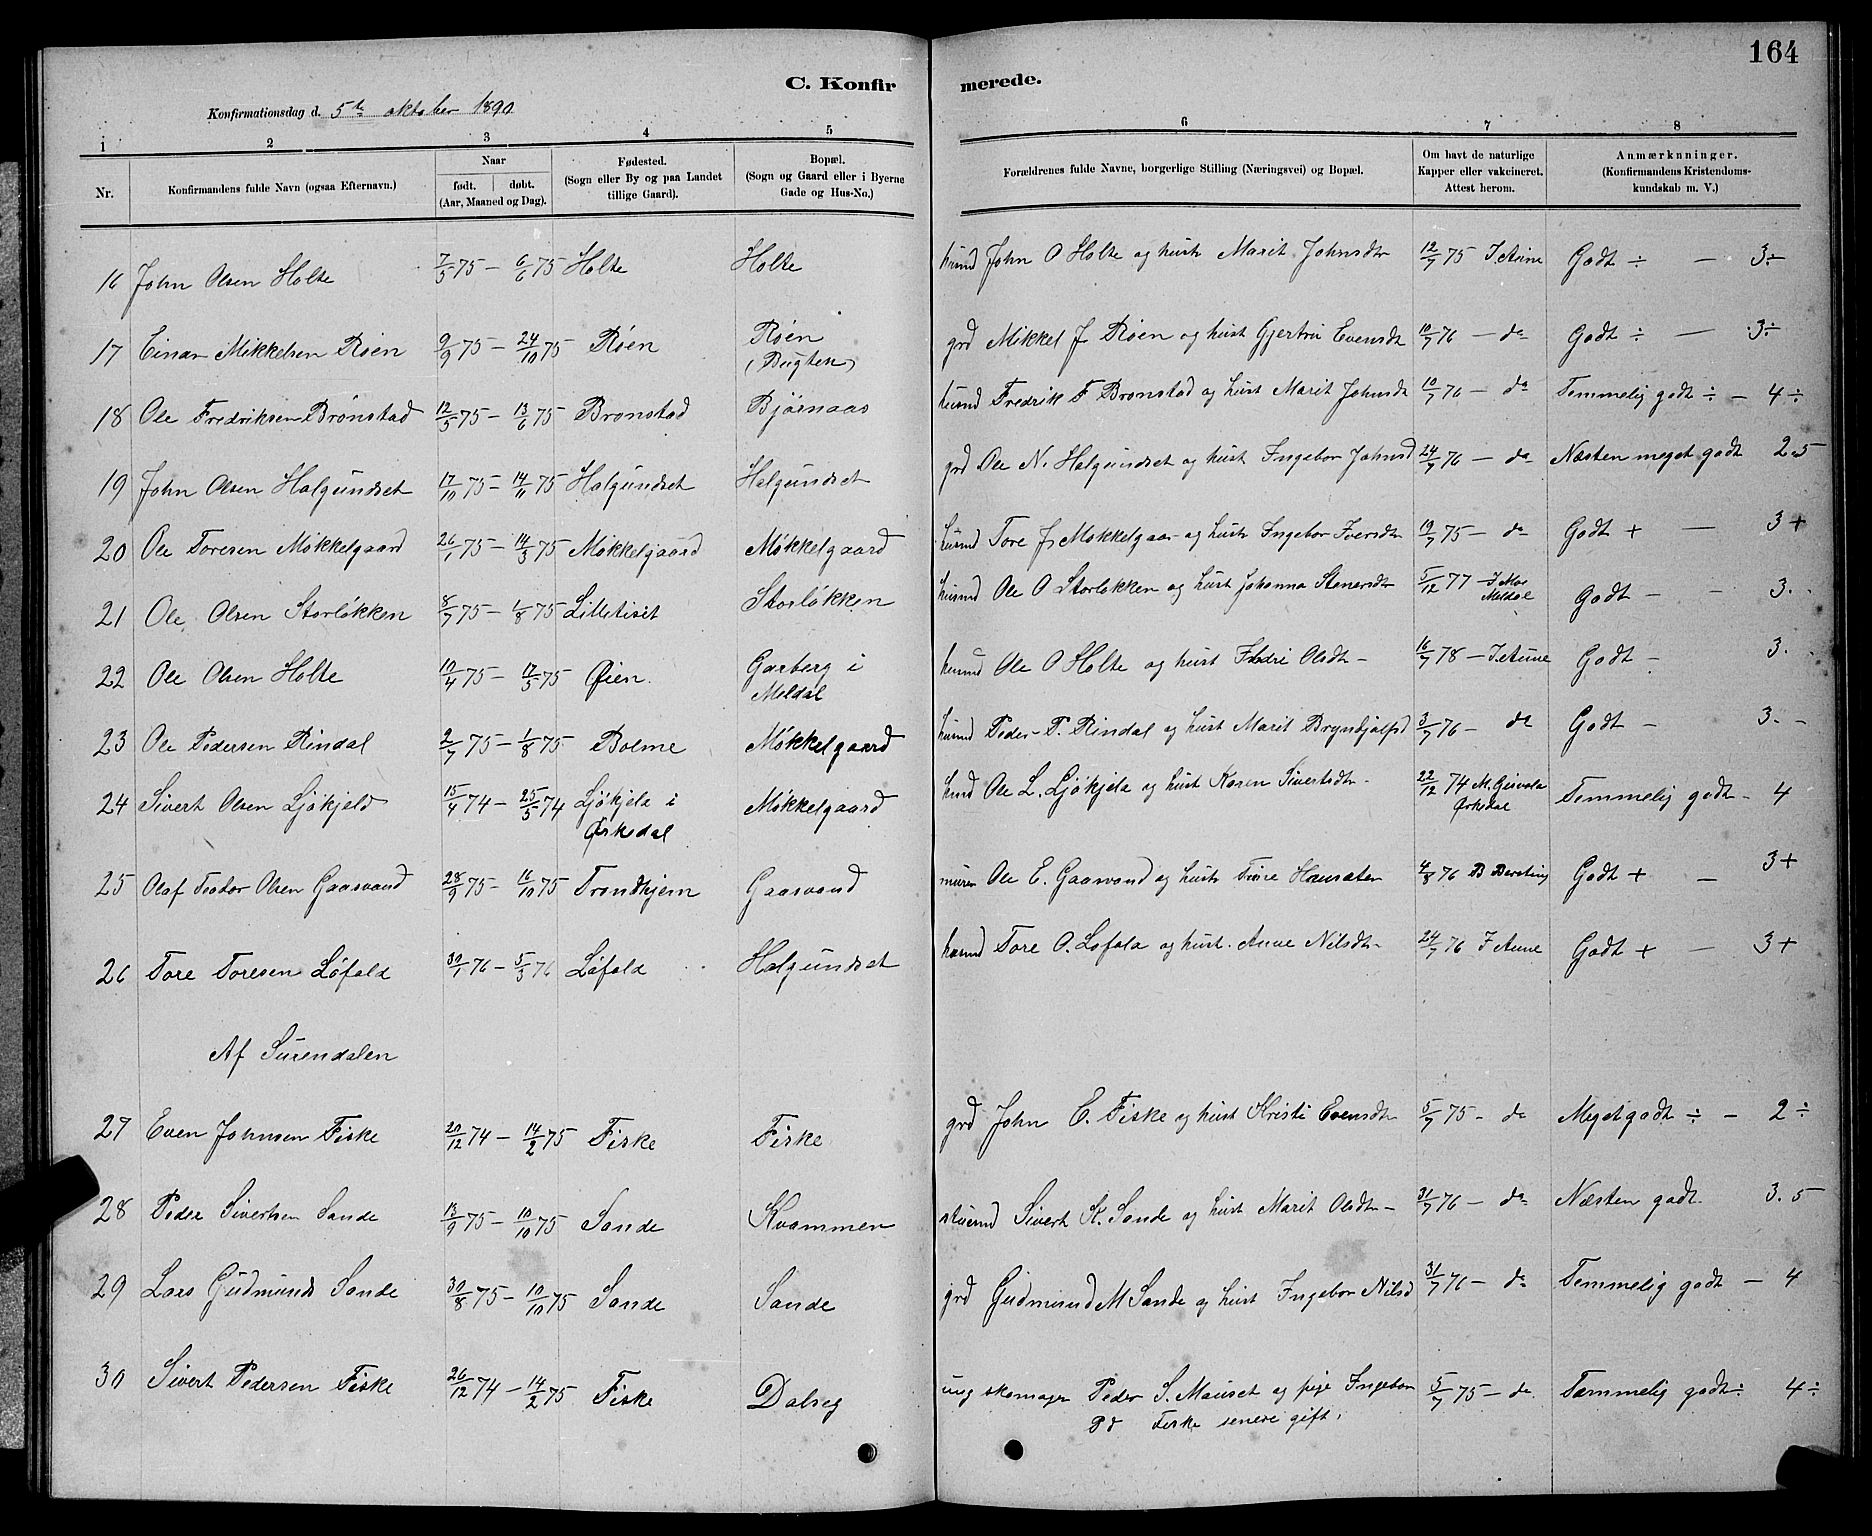 164
C. Konfir merede.
Konfirmationsdag d. 5te oktober 1890
1 2 3 4 5 6 7 8
Nr. Konfirmandens fulde Navn (ogsaa Efternavn.) Naar født. døbt. (Aar, Maaned og Dag). Fødested. (Sogn eller By og paa Landet tillige Gaard). Bopæl. (Sogn og Gaard eller i Byerne Gade og Hus-No.) Forældrenes fulde Navne, borgerlige Stilling (Næringsvei) og Bopæl. Om havt de naturlige Kapper eller vakcineret. Attest herom. Anmærknninger. (Konfirmandens Kristendoms-kundskab m. V.)
16 John Olsen Holte 7/5 75 – 6/6 75 Holte Holte husmd John O Holte og hustr Marit Johnsdtr 12/7 75 J. Aune Godt ÷ — 3÷
17 Einar Mikkelsen Røen 9/9 75 – 24/10 75 Røen Røen (Bugten) grd Mikkel J Røen og hust Gjertru Evensdt 10/7 76 – do Godt ÷ — 3÷
18 Ole Fredriksen Brønstad 12/5 75 – 13/6 75 Bronstad Bjørnaas husmd Fredrik F Bronstad og hust Marit Johnsdt 10/7 76 – do Temmelig godt ÷ – 4÷
19 John Olsen Halgundset 17/10 75 – 14/11 75 Halgundset Halgundset grd Ole N. Halgundset og hust Ingebor Johnsd 24/7 76 – do Næsten meget godt 2.5
20 Ole Toresen Møkkelgaard 26/1 75 – 14/3 75 Møkkelgaard Møkkelgaard husmd Tore J. Mokkelgaar og hustr Ingebor Iversdtr 19/7 75 – do Godt + — 3+
21 Ole Olsen Storløkken 8/7 75 – 1/8 75 Litletiset Storløkken husmd Ole O Storløkken og hust Johanna Stenersdtr 5/12 77 J. Moe Meldal Godt – – 3.
22 Ole Olsen Holte 10/4 75 – 17/5 75 Øien. Garberg i Meldal husmd Ole O Holte og hust Olsdtr – 16/7 78 – J. Aune Godt – 3.
23 Ole Pedersen Rindal 2/7 75 – 1/8 75 Bolme Møkkelgaard husmd Peder P. Rindal og hust Marit Brynhjulfsd 3/7 76 – do Godt – 3. –
24 Sivert Olsen Ljøkjeld 15/4 74 – 25/5 74 Ljøkjeld i Ørkedal Møkkelgaard husmd Ole L. Ljøkjela og hust Karen Sivertsdtr – 22/12 74 M. Orkedal Temmelig godt – 4
25 Olaf Teodor Olsen Gaasvand 28/9 75 – 16/10 75 Trondhjem Gaasvand murer Ole E. Gaasvand og hustr 4/8 76 B Godt + – 3+
26 Tore Toresen Løfald 30/1 76 – 5/3 76 Løfald Halgundset husmd Tore O. Løfald og hust. Anne Nilsdtr – 24/7 76 J Aune Godt + — 3+
Af Surendalen
27 Even Johnsen Fiske 20/12 74 – 14/2 75 Fiske Fiske grd John E. Fiske og hust Kristi Evensdtr 5/7 75 – do Meget godt ÷ – 2÷
28 Peder Sivertsen Sande 13/9 75 – 10/10 75 Sande Kvammen Sivert K. Sande og hust Marit Olsdtr – 31/7 76 – do Næsten godt. 3.5
29 Lars Gudmunds Sande 30/8 75 – 10/10 75 Sande Sande grd Gudmund M Sande og hust Ingebor Nilsd 31/7 76 – do Temmelig godt – 4
30 Sivert Pedersen Fiske 26/12 74 – 14/2 75 Fiske Dalseg ung skomager Peder S. Mauset og pige Ingebor Pd Fiske senere gift. 5/7 75 – do Temmelig godt ÷ 4÷